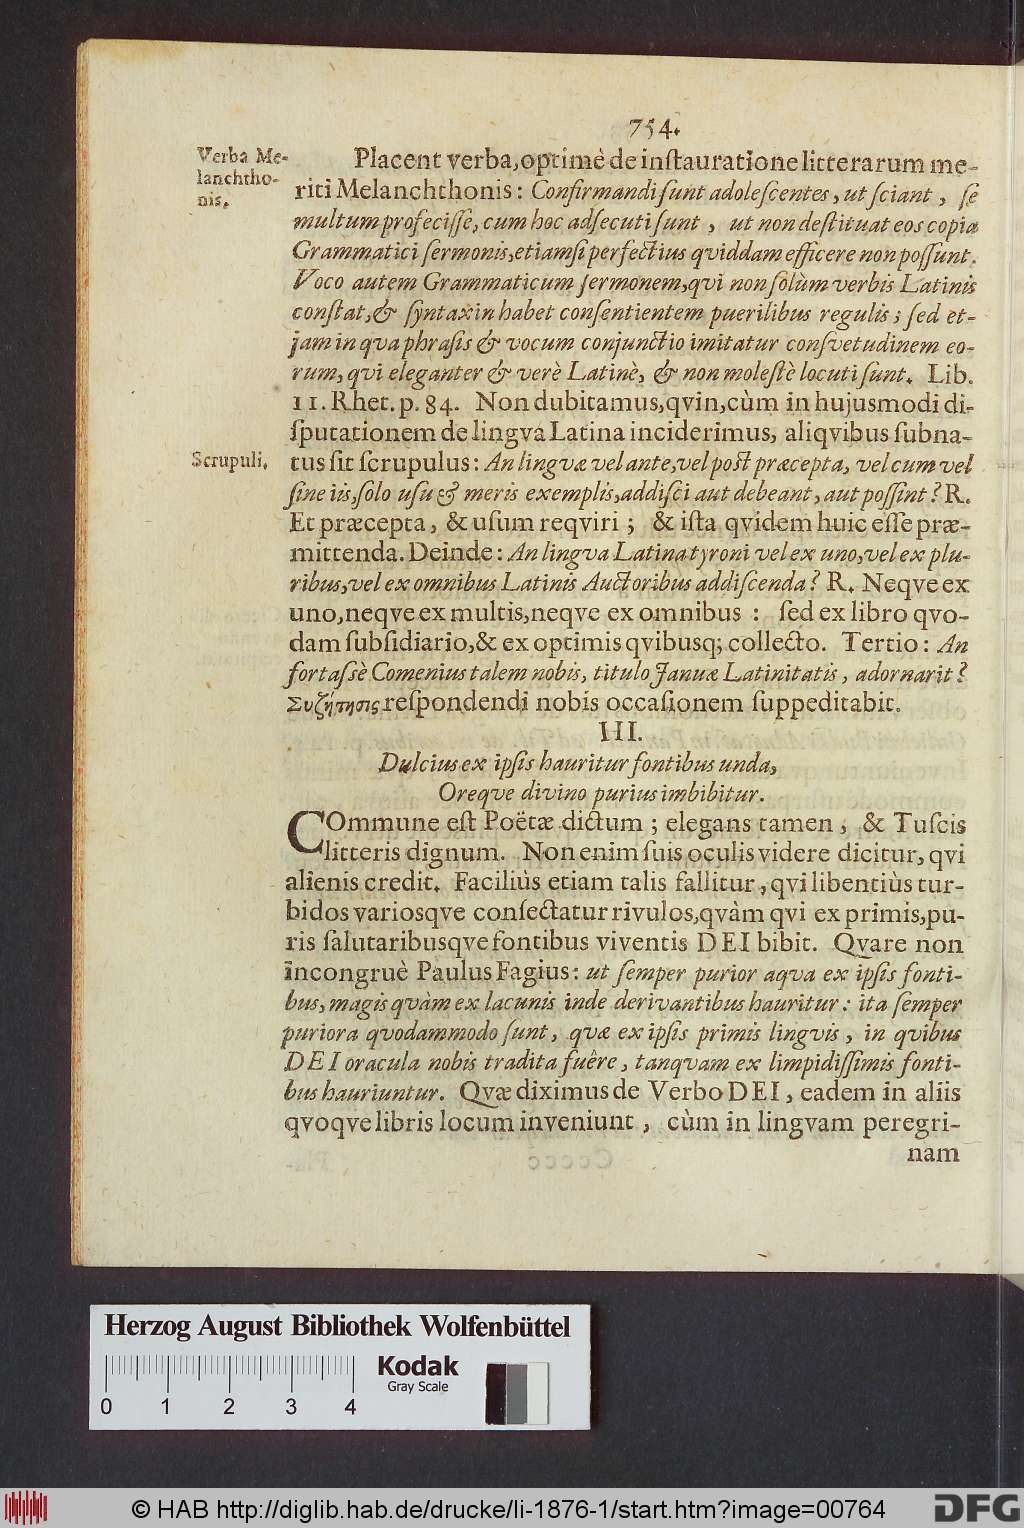 754.
Verba Me-
lanchtho-
nis.
Placent verba, optimè de instauratione litterarum me-
riti Melanchthonis: Confirmandi sunt adolescentes, ut sciant, se
multum profecisse, cum hoc adsecuti sunt, ut non destituat eos copia
Grammatici sermonis, etiamsi perfectius qviddam efficere non possunt.
Voco autem Grammaticum sermonem, qvi non solùm verbis Latinis
constat, & syntaxin habet consentientem puerilibus regulis; sed et-
jam in qva phrasis & vocum conjunctio imitatur consvetudinem eo-
rum, qvi eleganter & verè Latinè, & non molestè locuti sunt. Lib.
11. Rhet. p. 84. Non dubitamus, qvin, cùm in hujusmodi di-
sputationem de lingva Latina inciderimus, aliqvibus subna-
Scrupuli.
tus sit scrupulus: An lingvæ vel ante, vel post præcepta, vel cum vel
sine iis, solo usu & meris exemplis, addisci aut debeant, aut possint? R.
Et præcepta, & usum reqviri; & ista qvidem huic esse præ-
mittenda. Deinde: An lingva Latina tyroni vel ex uno, vel ex plu-
ribus, vel ex omnibus Latinis Auctoribus addiscenda? R. Neqve ex
uno, neqve ex multis, neqve ex omnibus: sed ex libro qvo-
dam subsidiario, & ex optimis qvibusq; collecto. Tertio: An
fortassè Comenius talem nobis, titulo Januæ Latinitatis, adornarit?
Συζήτησις respondendi nobis occasionem suppeditabit.
III.
Dulcius ex ipsis hauritur fontibus unda,
Oreqve divino purius imbibitur.
COmmune est Poëtæ dictum; elegans tamen, & Tuscis
litteris dignum. Non enim suis oculis videre dicitur, qvi
alienis credit. Faciliùs etiam talis fallitur, qvi libentiùs tur-
bidos variosqve consectatur rivulos, qvàm qvi ex primis, pu-
ris salutaribusqve fontibus viventis DEI bibit. Qvare non
incongruè Paulus Fagius: ut semper purior aqva ex ipsis fonti-
bus, magis qvàm ex lacunis inde derivantibus hauritur: ita semper
puriora qvodammodo sunt, qvæ ex ipsis primis lingvis, in qvibus
DEI oracula nobis tradita fuêre, tanqvam ex limpidissimis fonti-
bus hauriuntur. Qvæ diximus de Verbo DEI, eadem in aliis
qvoqve libris locum inveniunt, cùm in lingvam peregri-
nam
Herzog August Bibliothek Wolfenbüttel
Kodak
Gray Scale
0 1 2 3 4
© HAB http://diglib.hab.de/drucke/li-1876-1/start.htm?image=00764
DFG